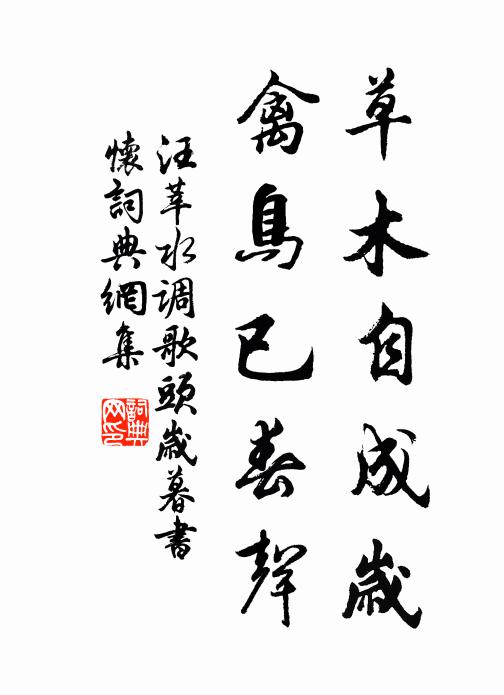 草木自成歲
禽鳥已春聲
汪莘水调歌頭歲暮書
懷詞典網集
詞典
网印